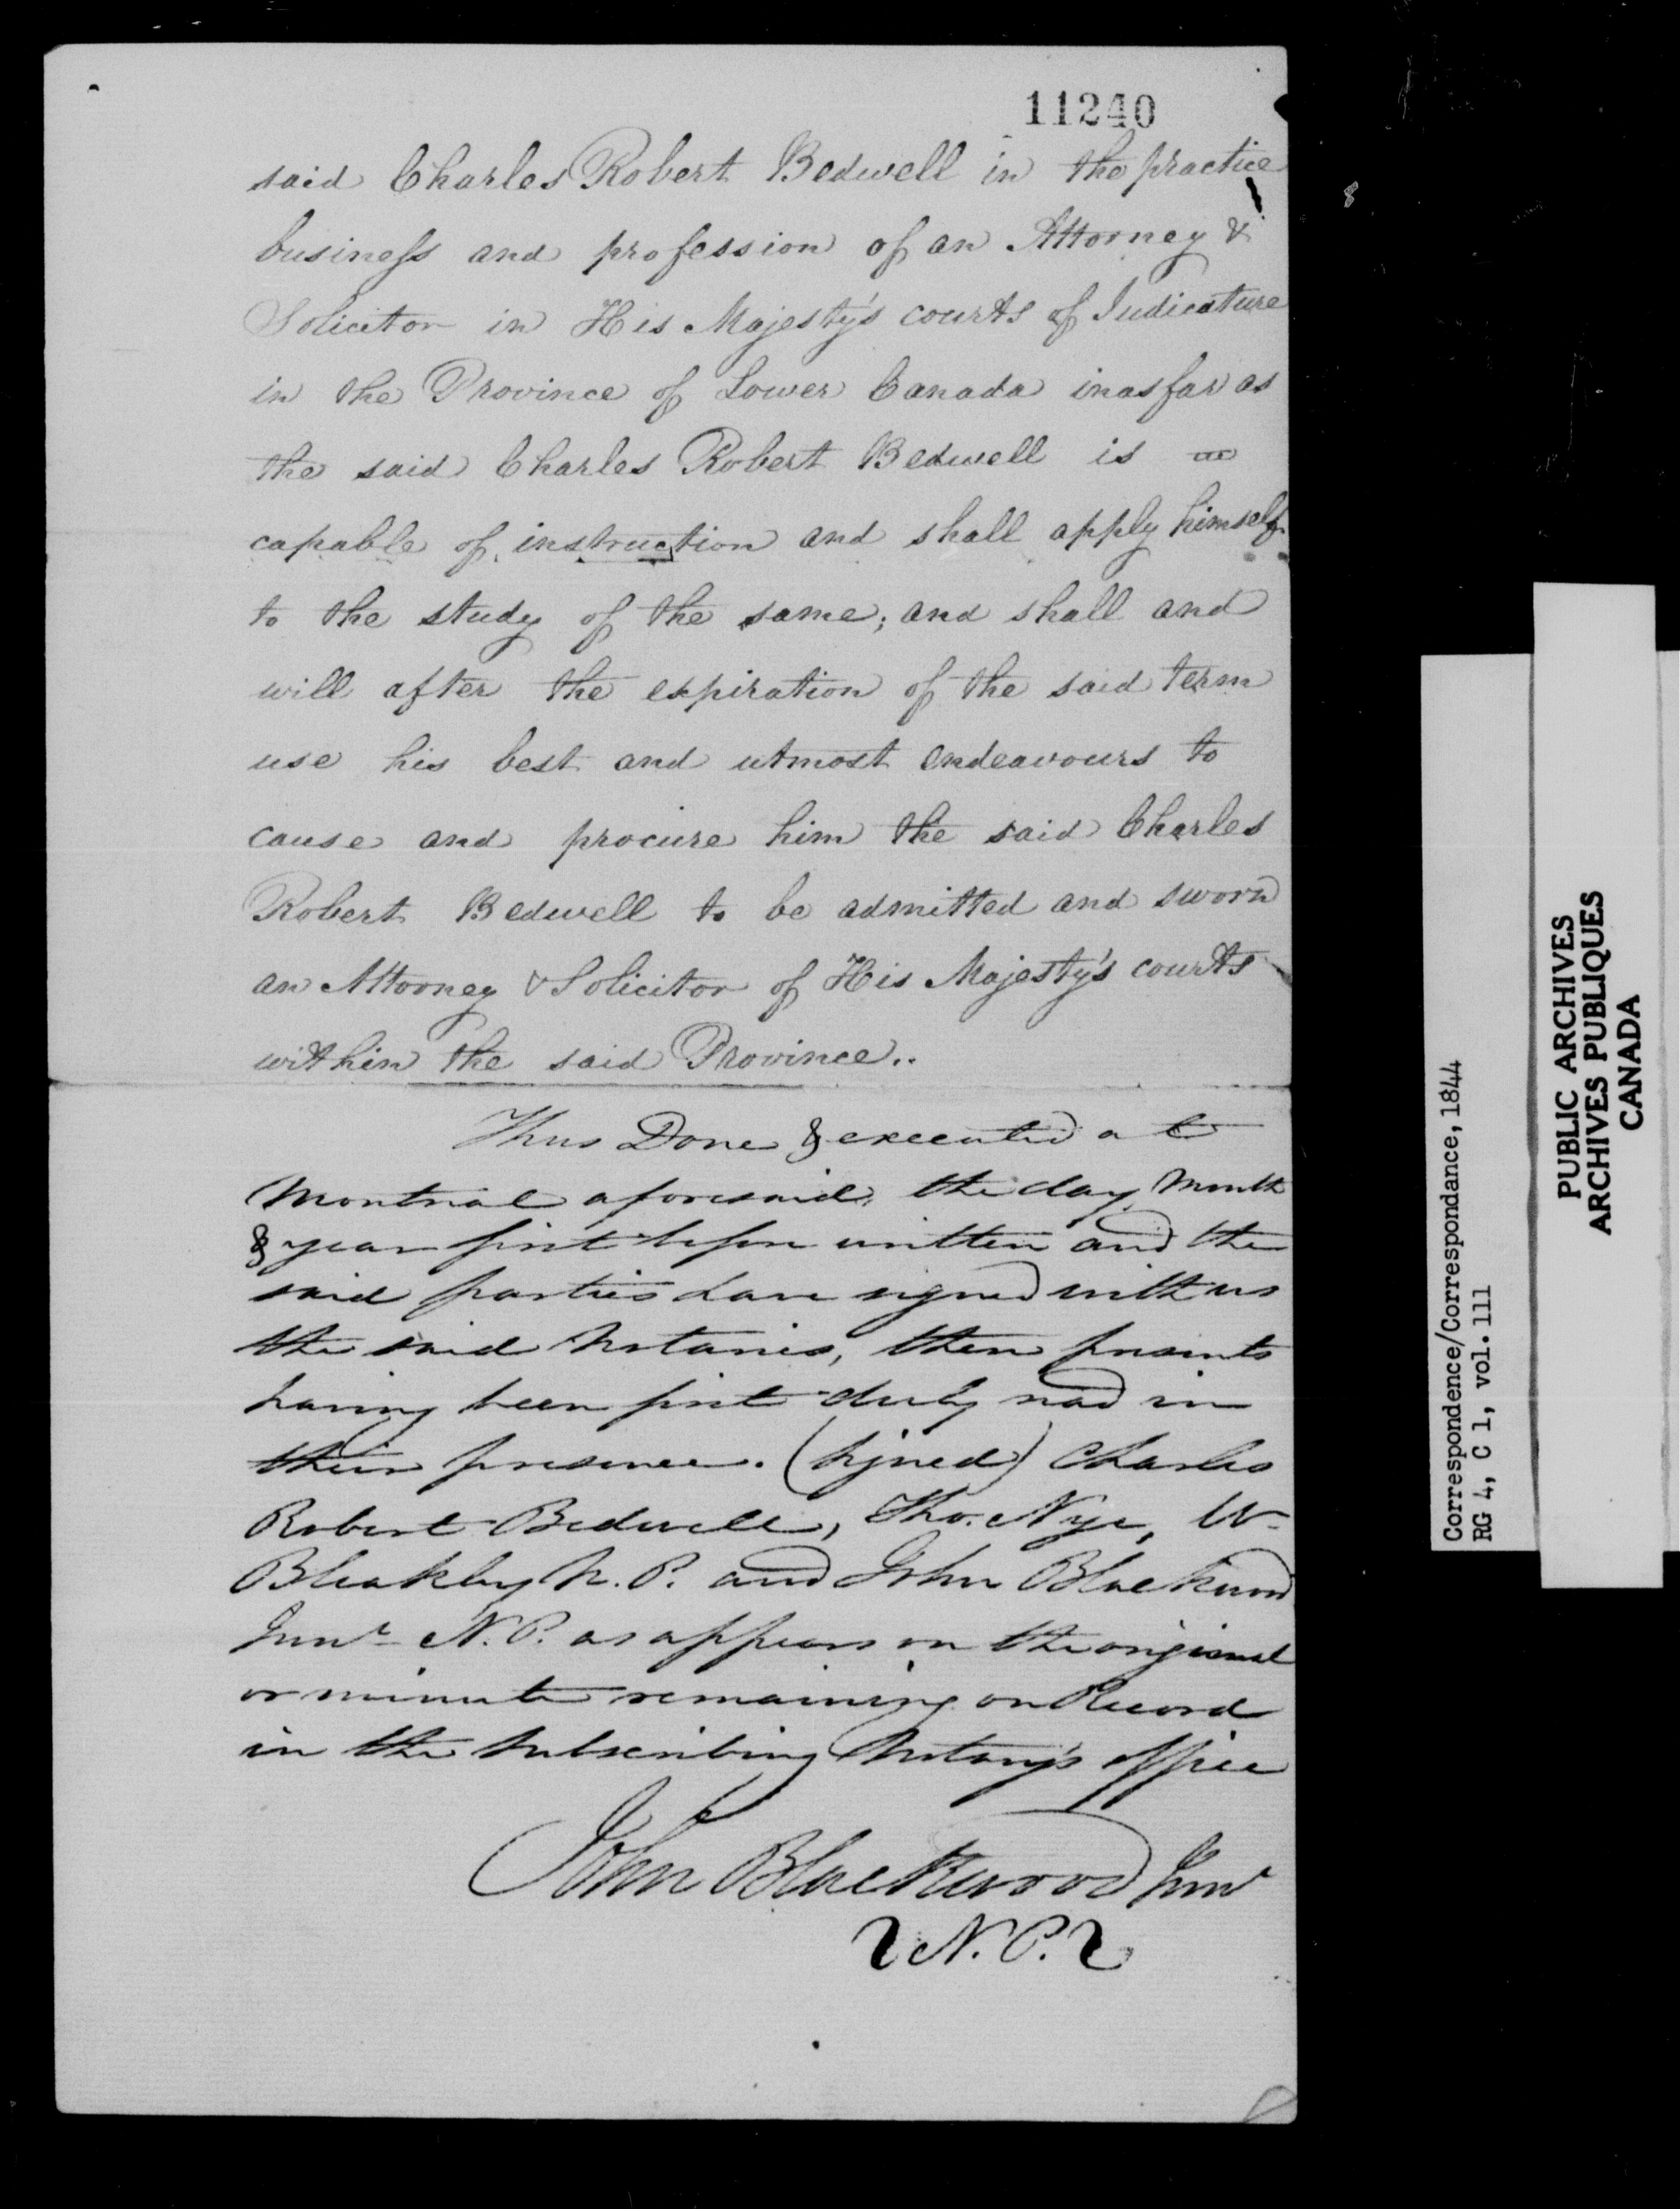 11240
said Charles Robert Bedwell in the practice
business and profession of an Attorney &
Solicitor in His Majesty's courts of Judicature
in the Province of Lower Canada inasfar as
the said Charles Robert Bedwell is
capable of instruction and shall apply himself
to the study of the same; and shall and
will after the expiration of the said term
use his best and utmost endeavours to
cause and procure him the said Charles
Robert Bedwell to be admitted and sworn
an Attorney & Solicitor of His Majesty's courts
within the said Province..
Thus Done & executed at
Montreal aforesaid, the day, Month
& year first before written and the
said parties have signed with us
the said Notaries, these presents
having been first duly read in
their presence. (Signed) Charles
Robert Bedwell, Tho. Nye, W.
Bleakley N.P. and John Blackwood
Junr. N.P. as appears on the original
or minute remaining on Record
in the Subscribing Notary's office
John Blackwood Junr
N.P.
Correspondence/Correspondance, 1844
RG 4, C 1, vol. 111
PUBLIC ARCHIVES
ARCHIVES PUBLIQUES
CANADA